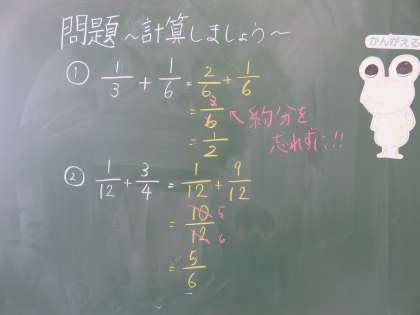 問題 ~計算しましょう~
かんがえる
① 1/3 + 1/6 = 2/6 + 1/6
= 3/6
約分を
忘れずに!!
= 1/2
② 1/12 + 3/4 = 1/12 + 9/12
= 10/12 5 6
= 5/6